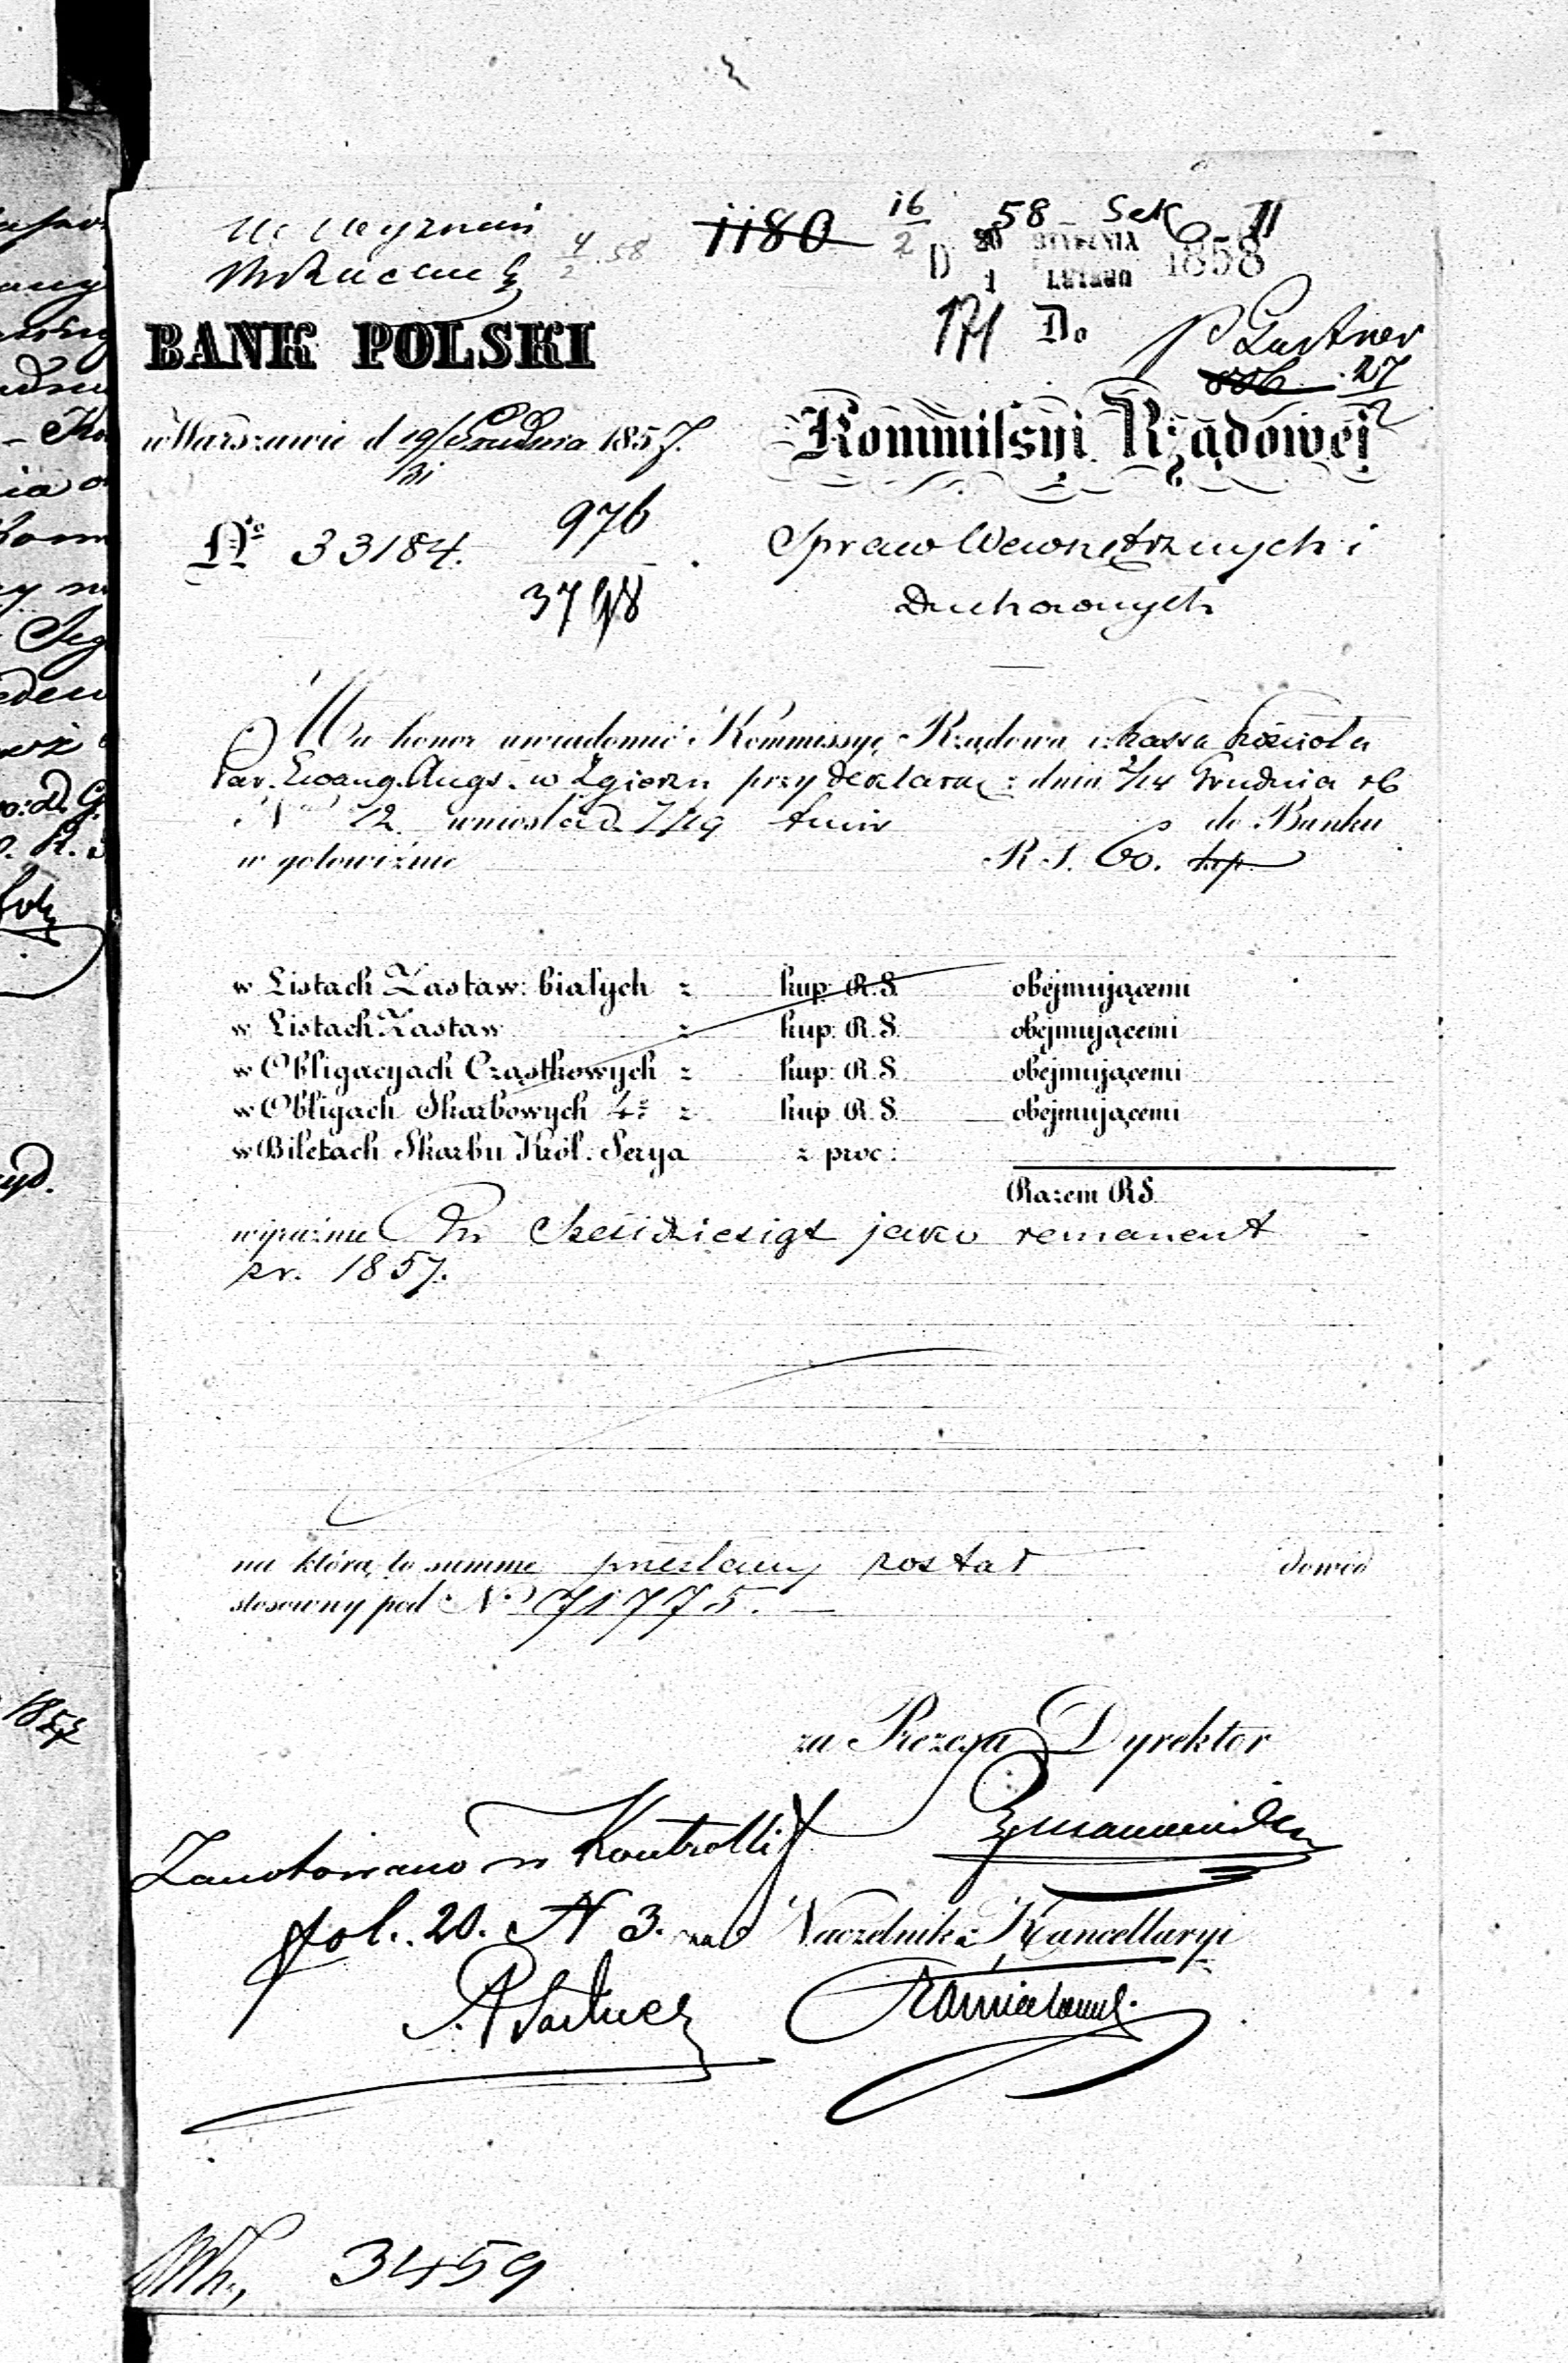 1180 16/2 58 Sek II
4/2 58
D 20 STYCZNIA 1858
1 LUTEGO
171 Do
27/2
BANK POLSKI
w Warszawie d 19/31 Grudnia 1857.
Kommissyi Rządowej
No 33184. 976
3798
Spraw Wewnętrznych i
Duchownych
Ma honor uwiadomić Kommissyę Rządową iż kassa kościoła
Par. Ewang. Augs. w Zgierzu przy deklarac: dnia 2/14 Grudnia rb
No 12 wniosła d. 7/19 do Banku
w gotowiźnie R S. 60. kop
w Listach Zastaw: białych z kup: R.S. obejmującemi
w Listach Zastaw z kup: R.S. obejmującemi
w Obligacyach Cząstkowych z kup: R.S. obejmującemi
w Obligach Skarbowych 4% z kup R.S. obejmującemi
w Biletach Skarbu Król. Serya z proc:
Razem RS.
wyraźnie Rs Sześćdziesiąt jako remanent
zr. 1857.
na którą to summę przesłany został dowód
stosowny pod No 71775.
za Prezesa Dyrektor
Zanotowano w Kontrolli
fol. 20. N 3.
Naczelnik Kancellaryi
3459